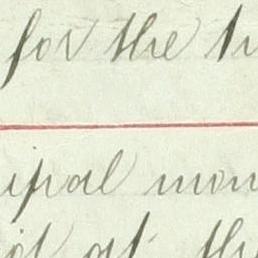 for the
ipal mon
at the